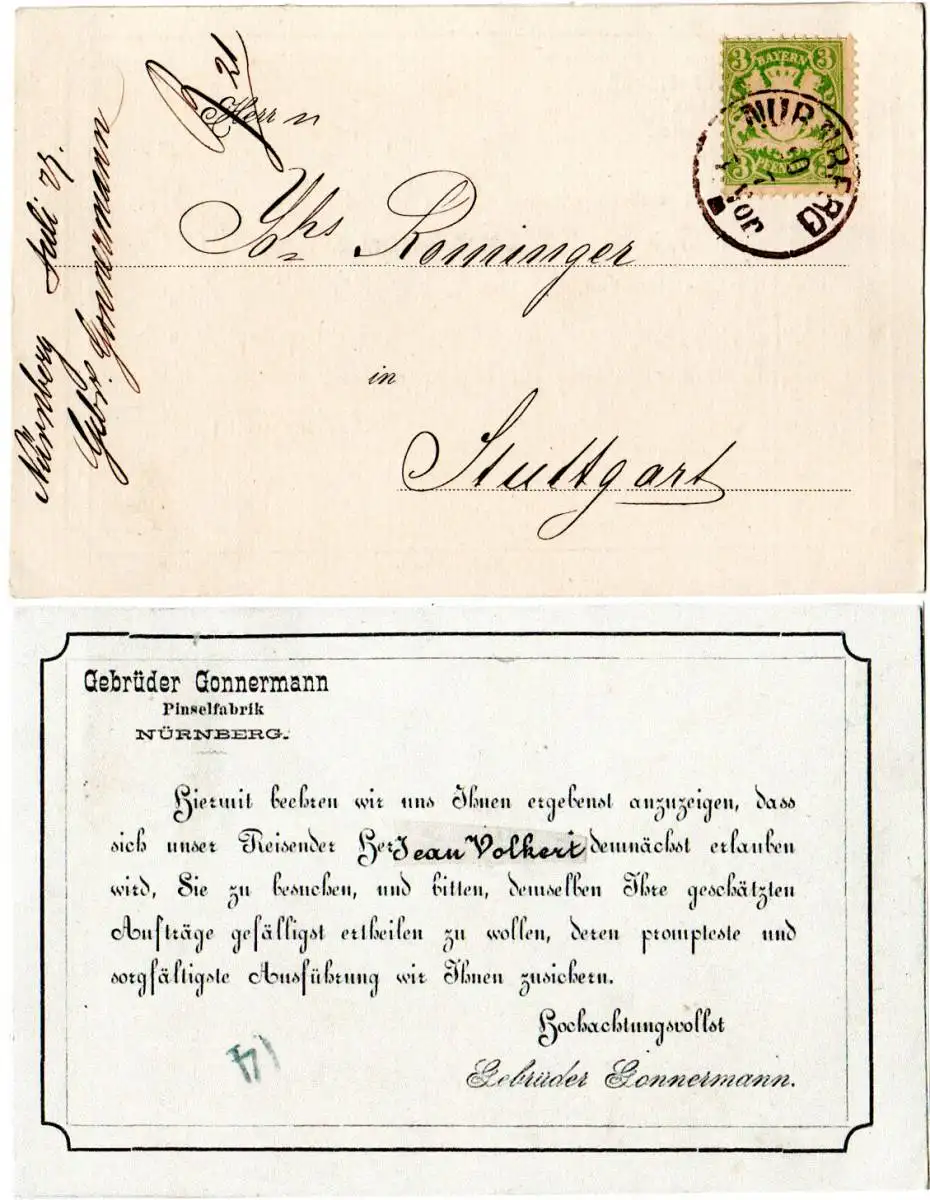 21
Herrn
Joh⁠s Rominger
in
Stuttgart
Nürnberg Juli 75.
Gebr. Gonnermann
3 BAYERN 3
3 PFENNIG 3
NÜRNBERG
Gebrüder Gonnermann
Pinselfabrik
NÜRNBERG.
Hiermit beehren wir uns Ihnen ergebenst anzuzeigen, dass
sich unser Reisender Her Jean Volkert demnächst erlauben
wird, Sie zu besuchen, und bitten, demselben Ihre geschätzten
Aufträge gefälligst ertheilen zu wollen, deren prompteste und
sorgfältigste Ausführung wir Ihnen zusichern.
Hochachtungsvollst
Gebrüder Gonnermann.
14